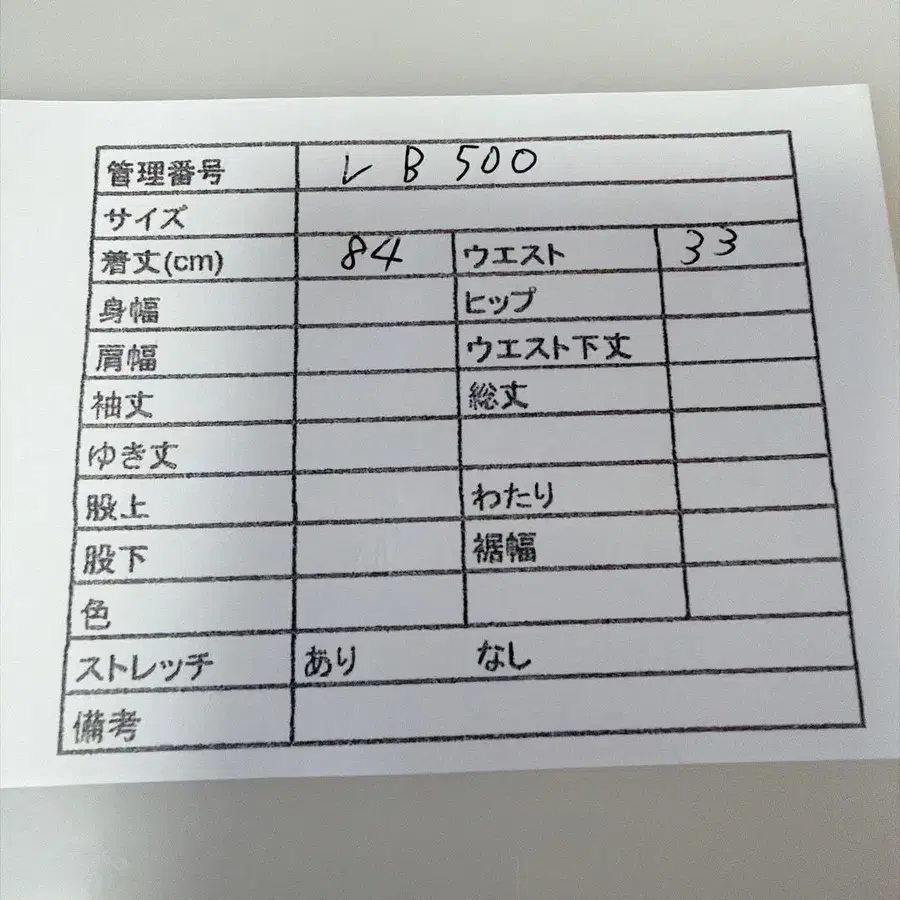 管理番号 レ B 500
サイズ
着丈(cm) 84 ウエスト 33
身幅 ヒップ
肩幅 ウエスト下丈
袖丈 総丈
ゆき丈
股上 わたり
股下 裾幅
色
ストレッチ あり なし
備考